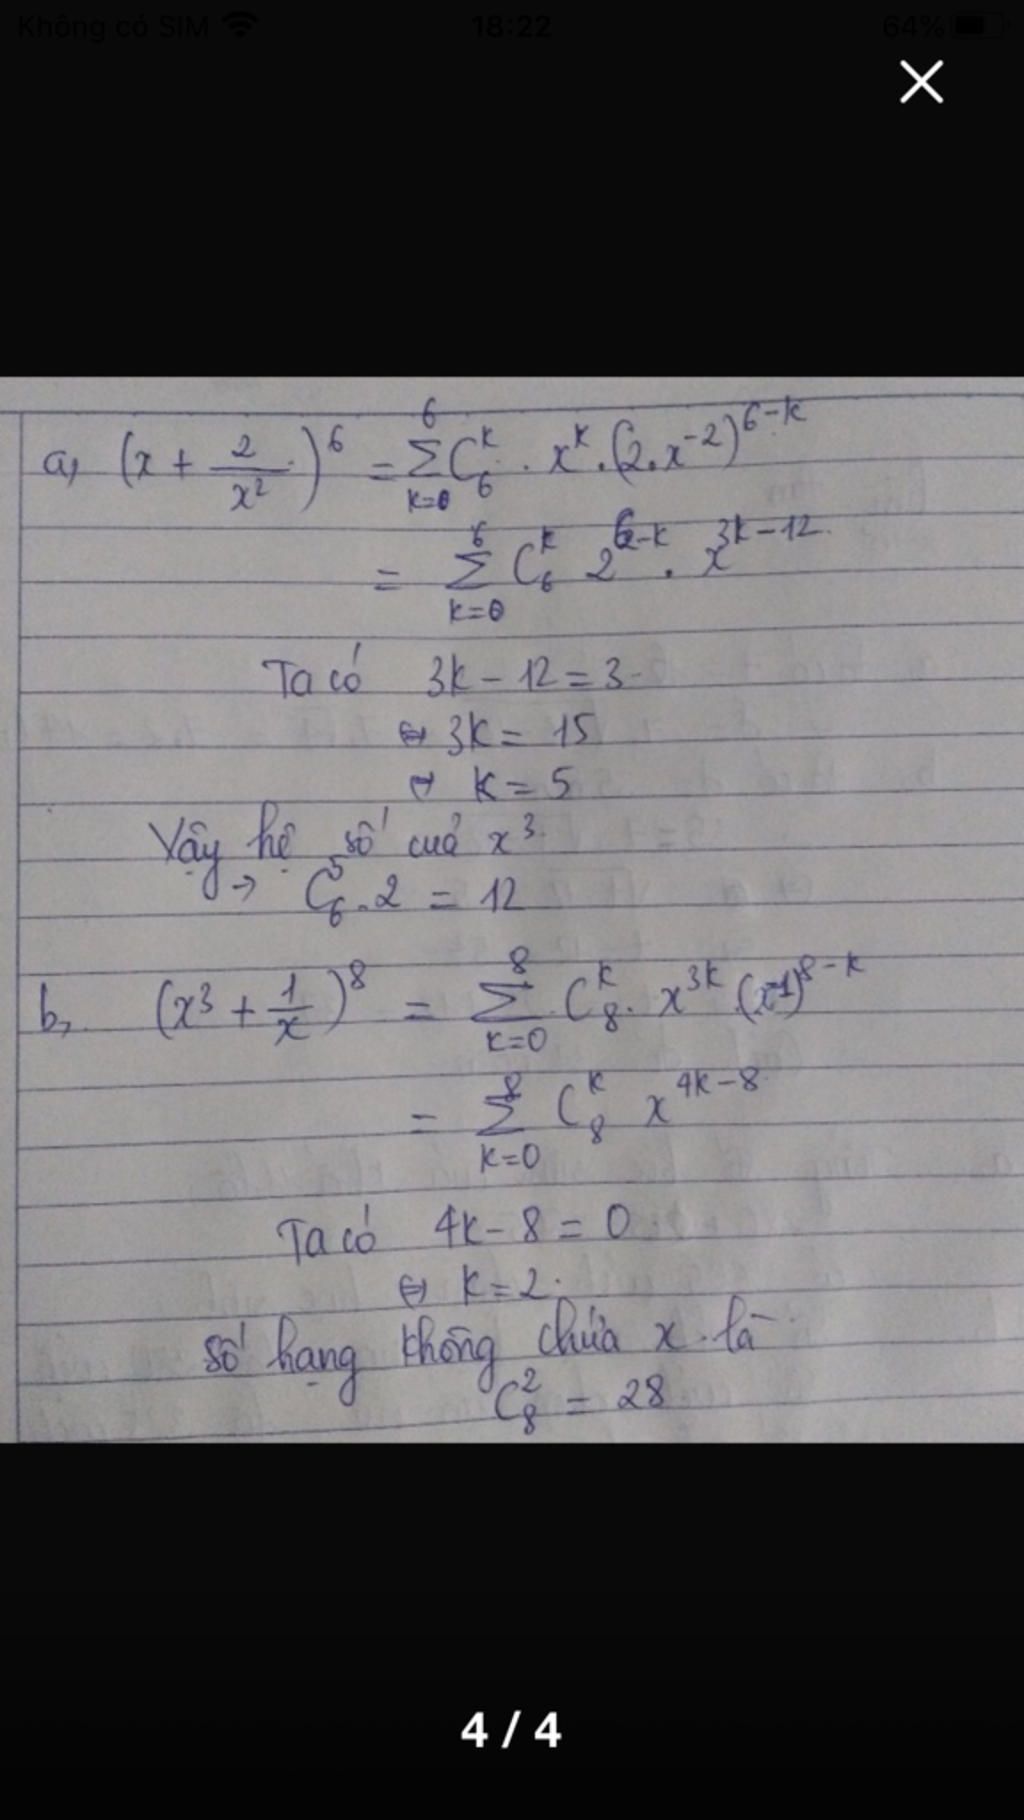 Không có SIM 18:22 64%
a, (x + 2/x²)⁶ = Σ_{k=0}^{6} C₆ᵏ . xᵏ . (2.x⁻²)⁶⁻ᵏ
= Σ_{k=0}^{6} C₆ᵏ 2⁶⁻ᵏ . x³ᵏ⁻¹²
Ta có 3k - 12 = 3
⇔ 3k = 15
⇔ k = 5
Vậy hệ số cuả x³
→ C₆⁵ . 2 = 12
b, (x³ + 1/x)⁸ = Σ_{k=0}^{8} C₈ᵏ . x³ᵏ (x⁻¹)⁸⁻ᵏ
= Σ_{k=0}^{8} C₈ᵏ x⁴ᵏ⁻⁸
Ta có 4k - 8 = 0
⇔ k = 2.
số hạng không chứa x là
C₈² = 28
4 / 4